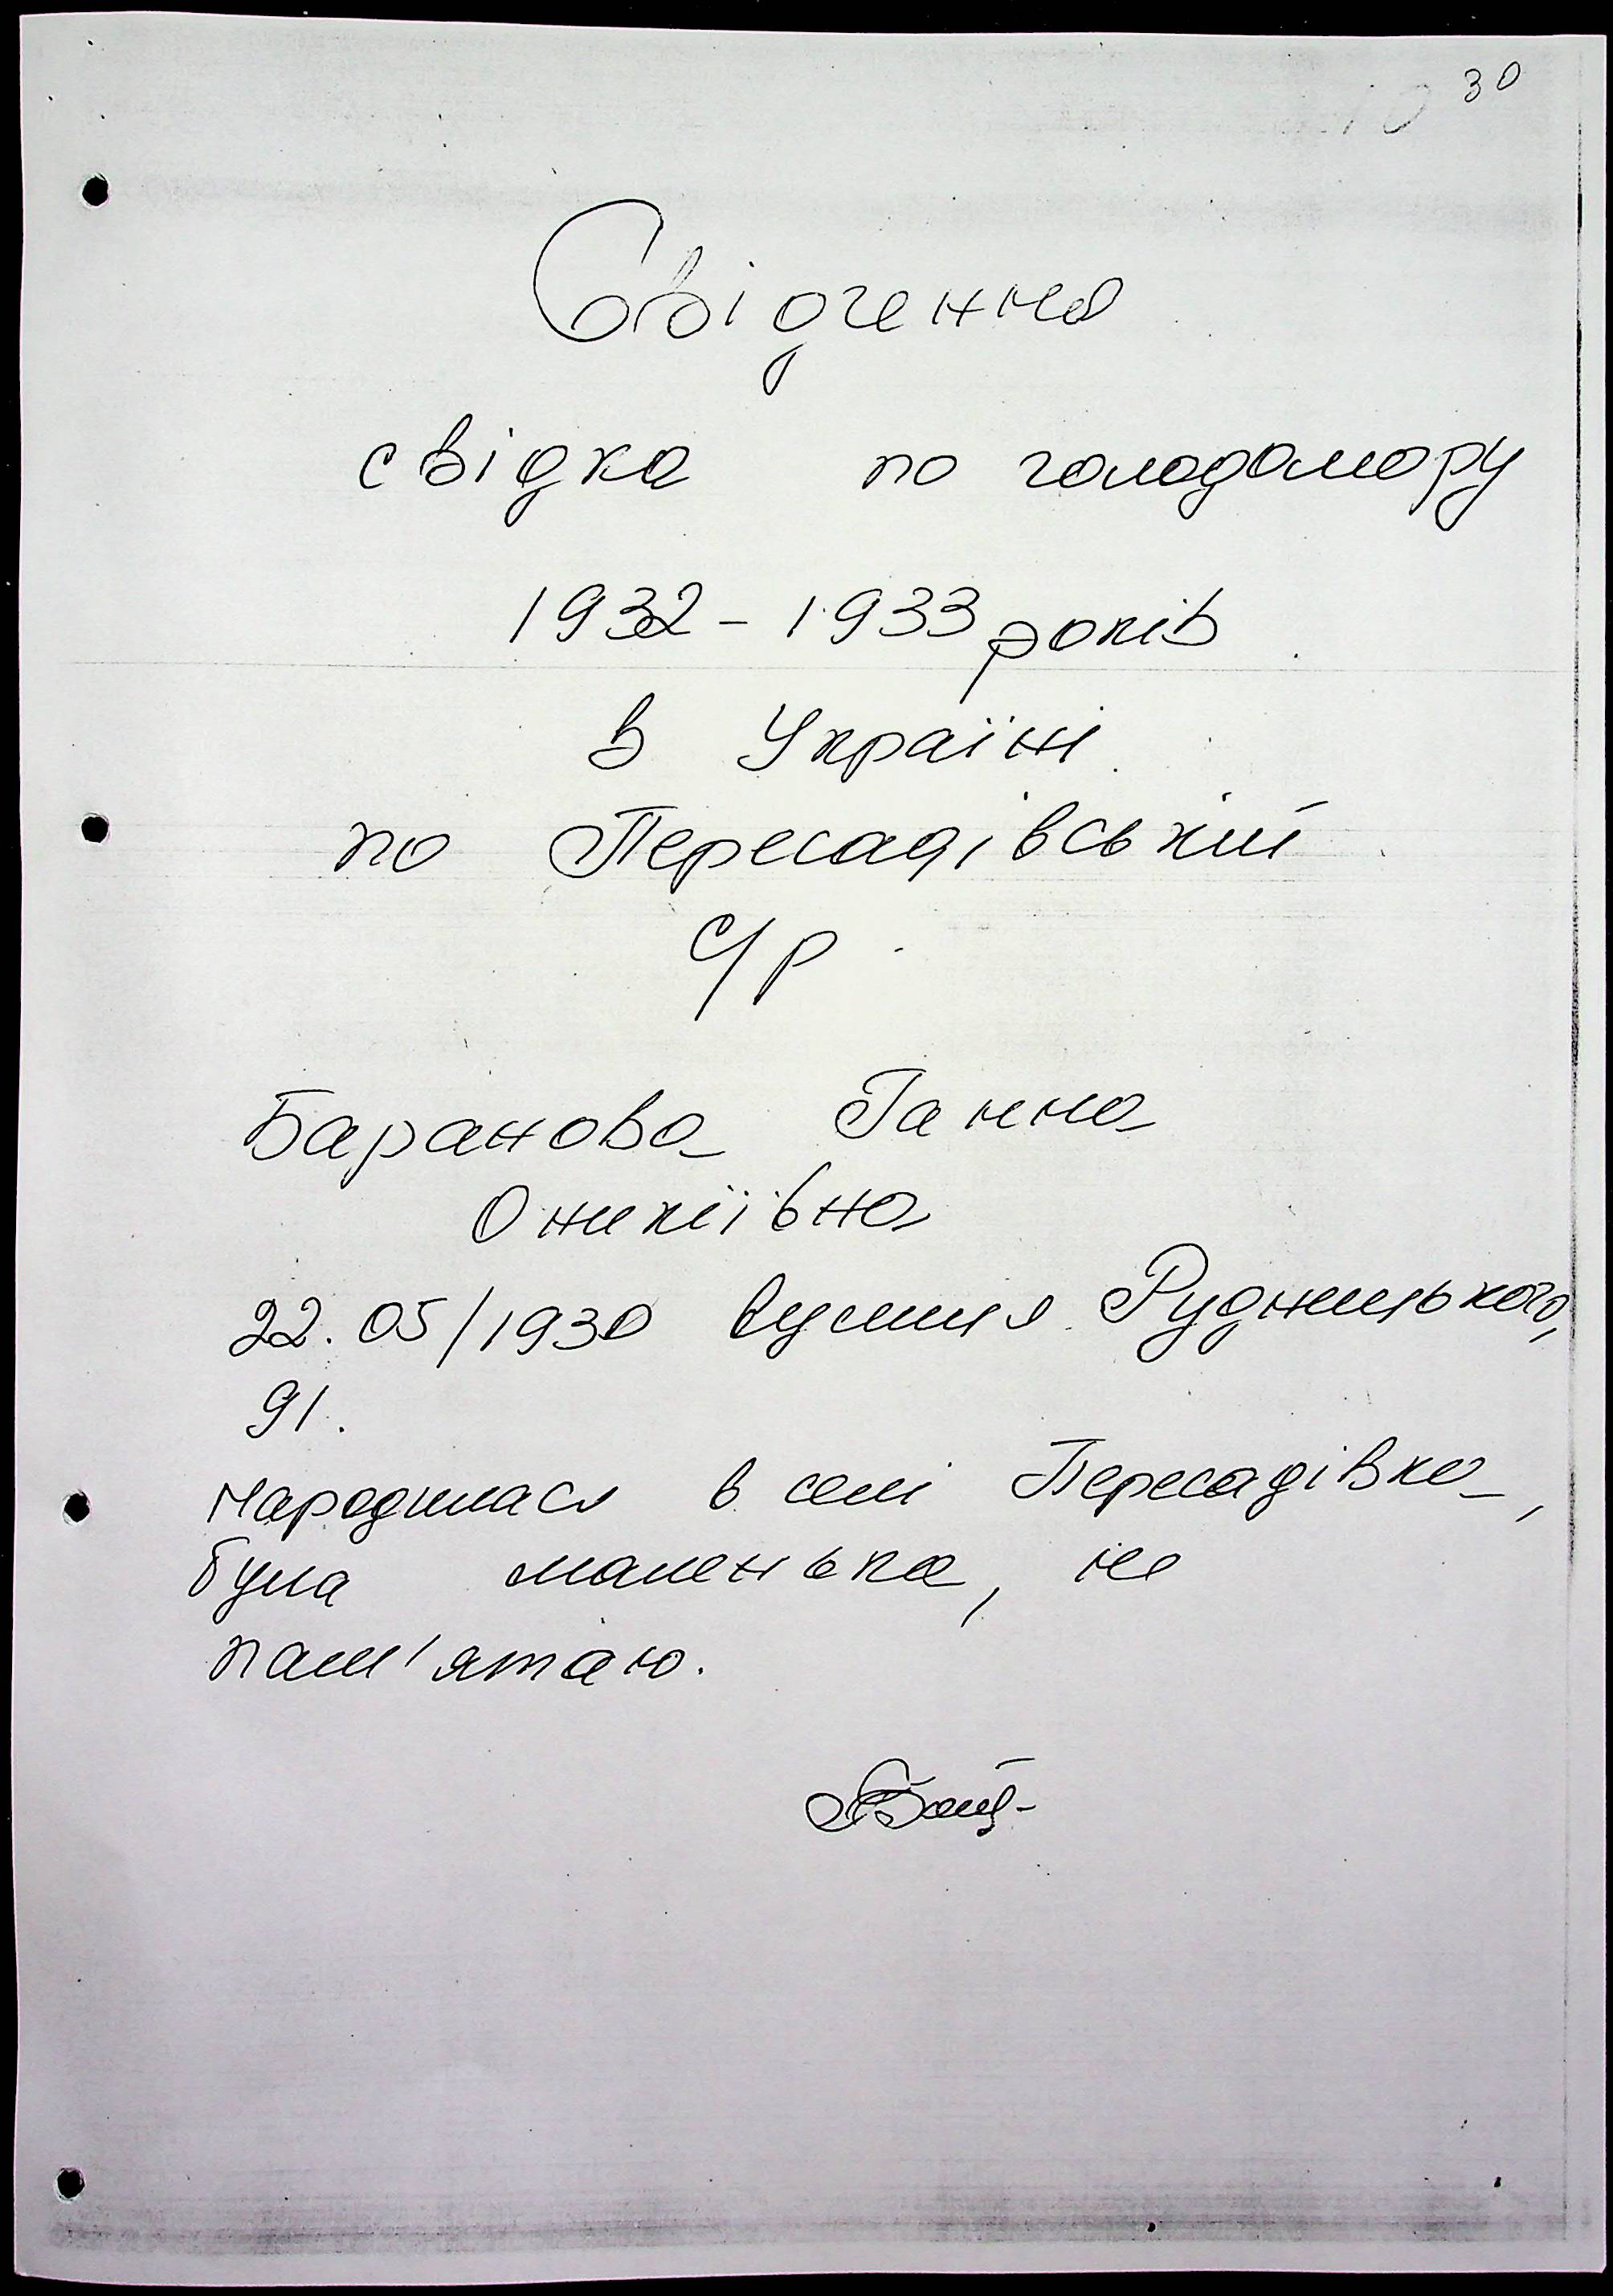 30
Свідчення
свідка по голодомору
1932 - 1933 років
в Україні
по Пересадівській
с/р
Баранова Ганна
Оникіївна
22.05/1930 вулиця Рудницького,
91.
народилася в селі Пересадівка,
була маленька, не
пам'ятаю.